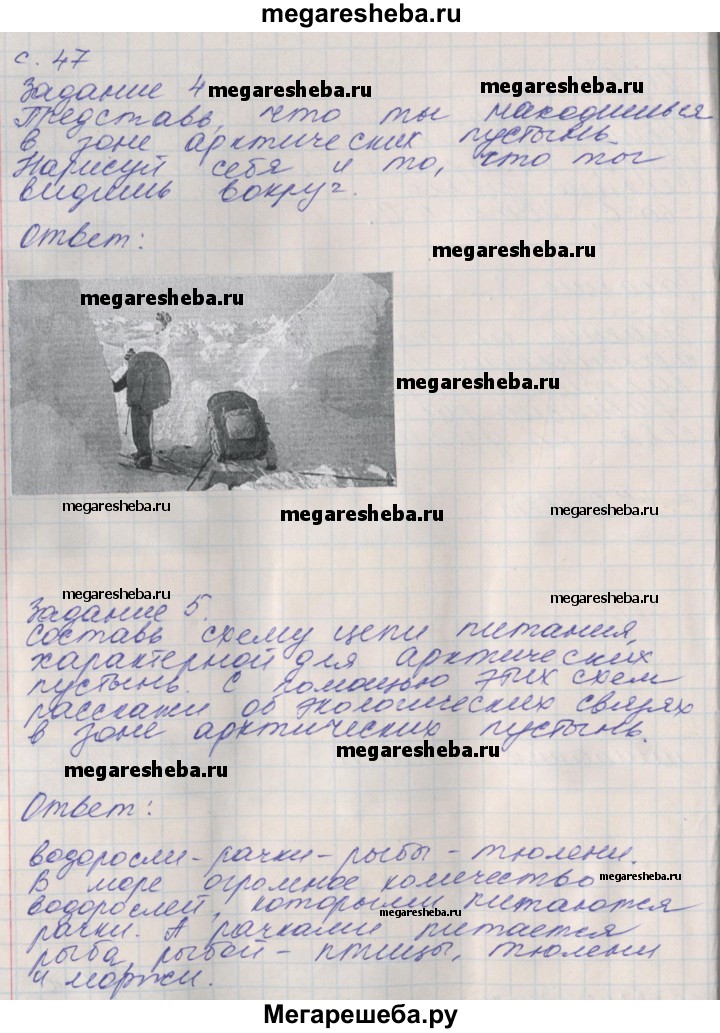 megaresheba.ru
с. 47
Задание 4
megaresheba.ru
megaresheba.ru
Представь, что ты находишься
в зоне арктических пустынь.
Нарисуй себя и то, что ты
видишь вокруг.
Ответ:
megaresheba.ru
megaresheba.ru
megaresheba.ru
megaresheba.ru
megaresheba.ru
megaresheba.ru
megaresheba.ru
megaresheba.ru
Задание 5.
Составь схему цепи питания,
характерной для арктических
пустынь. С помощью этих схем
расскажи об экологических связях
в зоне арктических пустынь.
megaresheba.ru
megaresheba.ru
Ответ:
водоросли - рачки - рыбы - тюлени.
В море огромное количество
megaresheba.ru
водорослей, которыми питаются
megaresheba.ru
рачки. А рачками питается
megaresheba.ru
рыба, рыбой - птицы, тюлени
и моржи.
Мегарешеба.ру